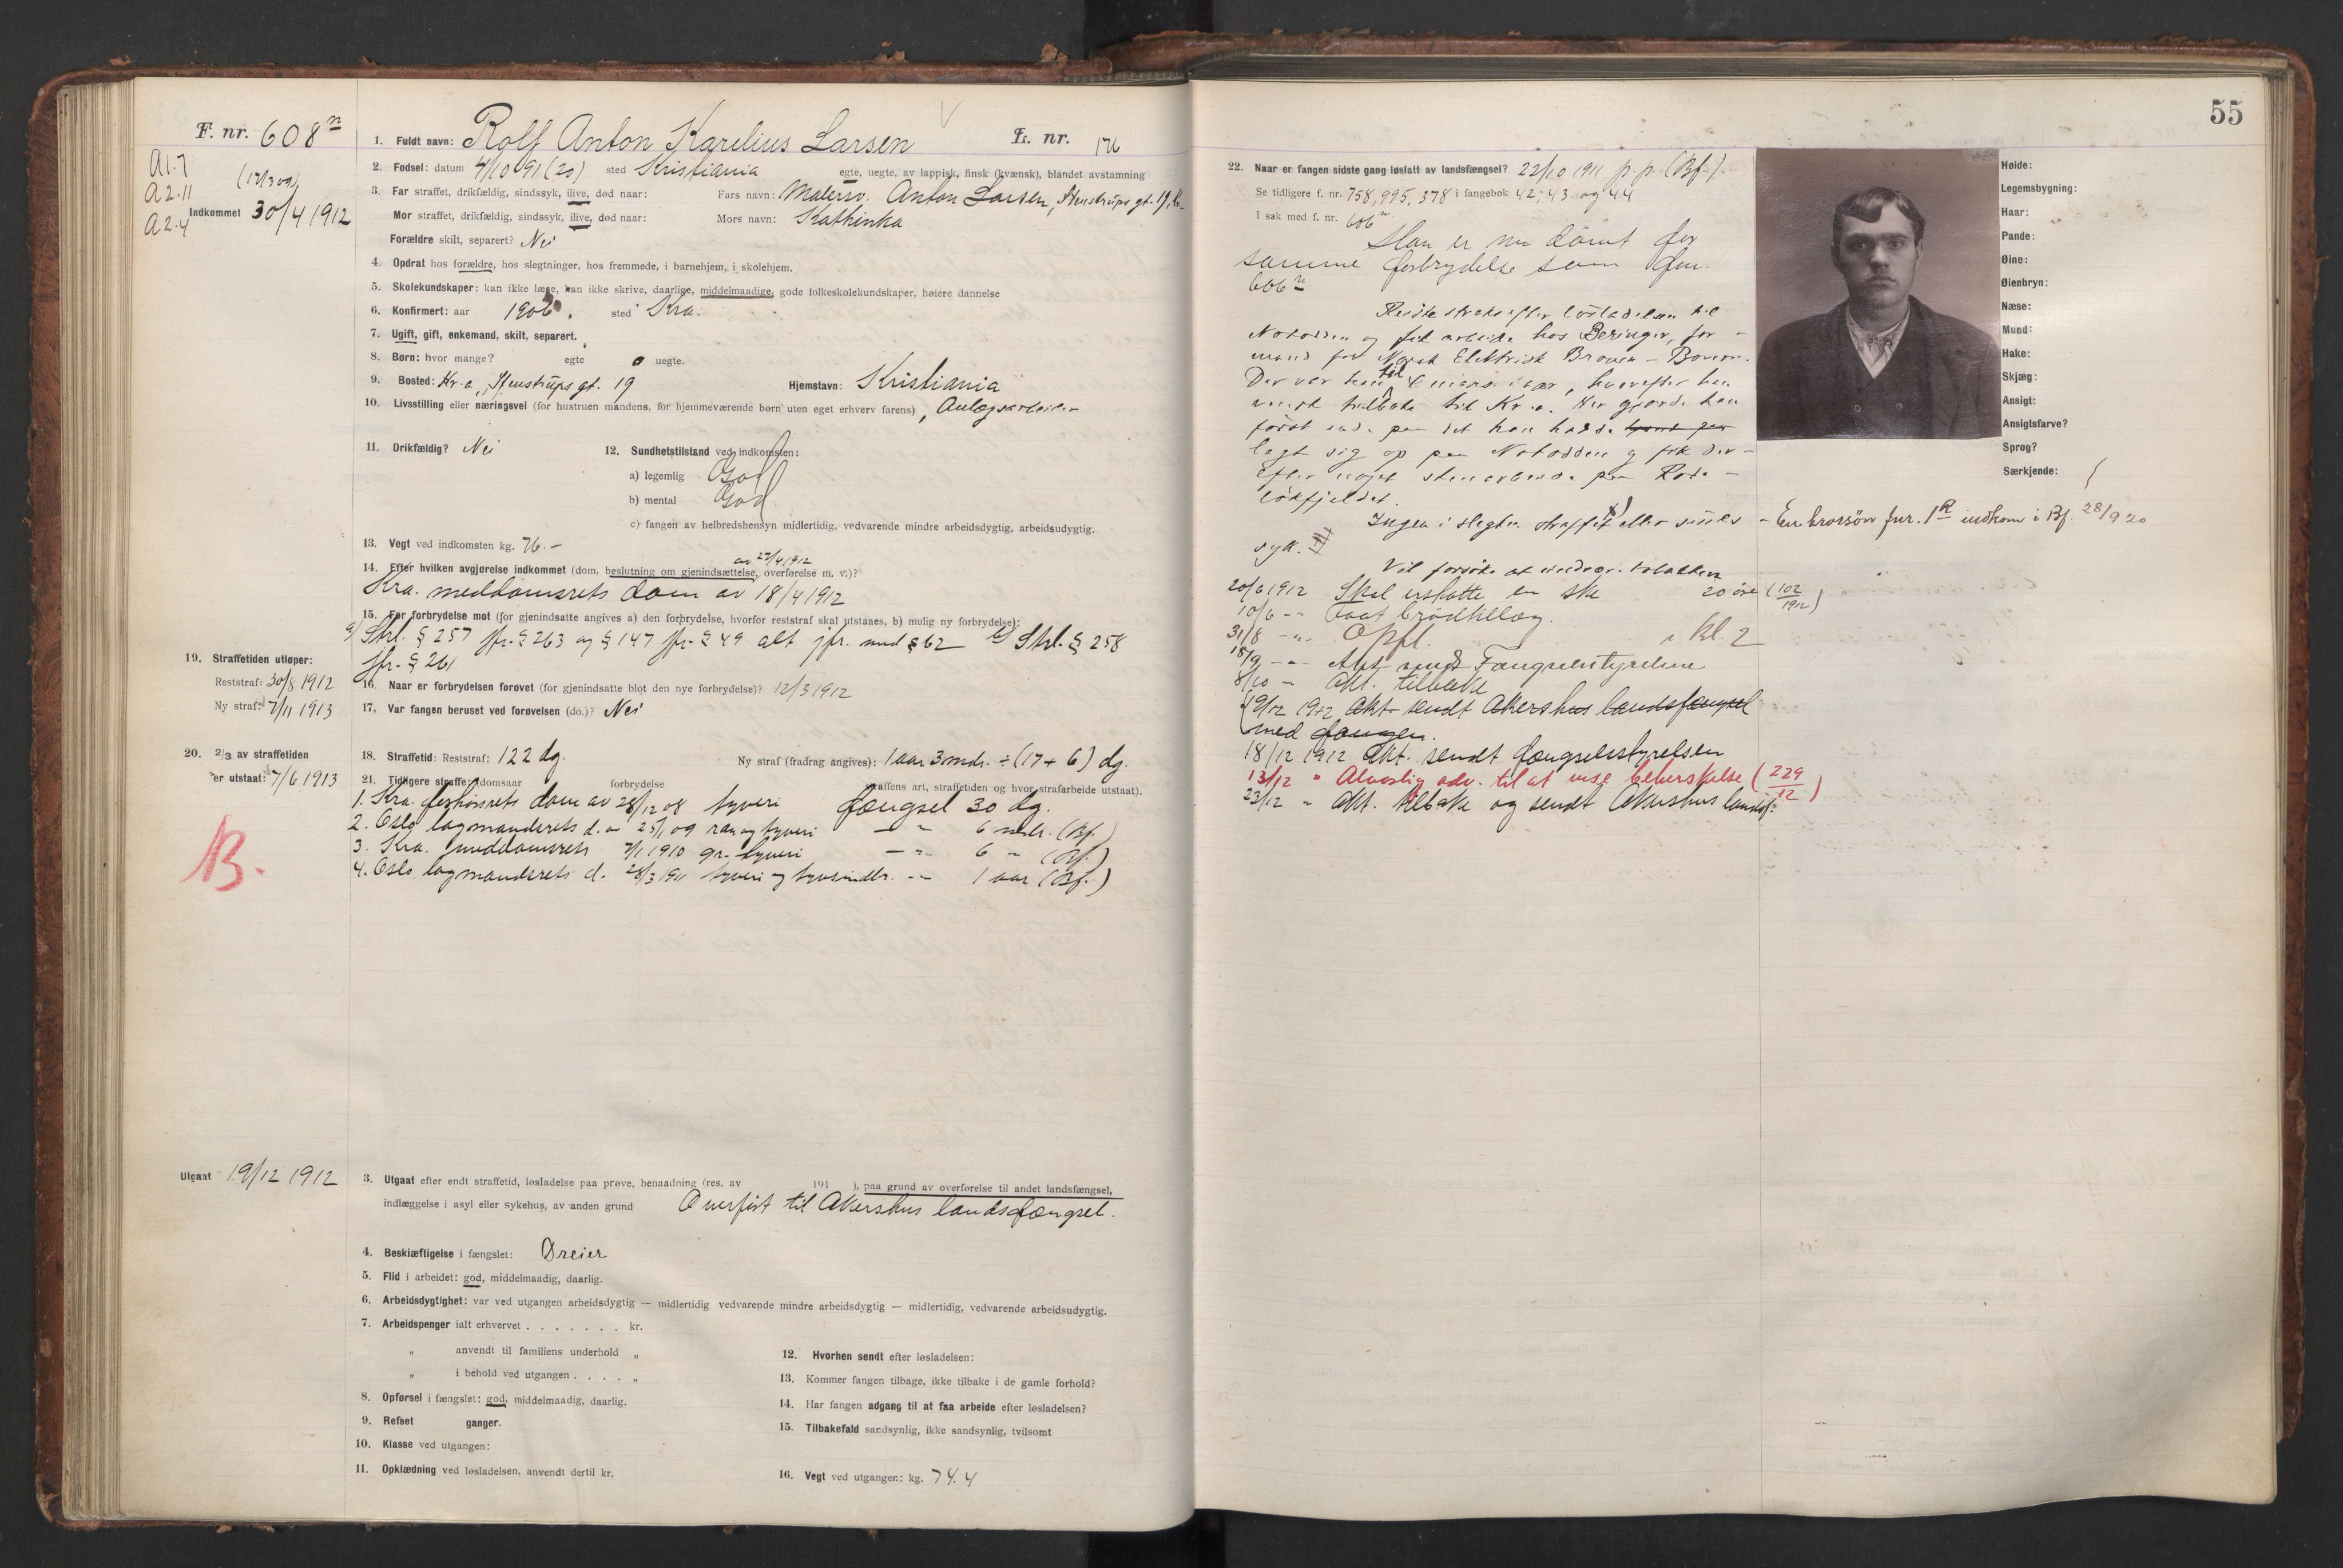 F. nr. 608 n
A1.7
A2.11
(17/3 09)
A2.4
Indkommet 30/4 1912
1. Fuldt navn: Rolf Anton Karelius Larsen L. nr. 176
2. Fødsel: datum 4/10 91 (20) sted Kristiania egte, uegte, av lappisk, finsk (kvænsk), blandet avstamning
3. Far straffet, drikfældig, sindssyk, ilive, død naar: Fars navn: Malersv. Anton Larsen, Stenstrups gt. 19, Kr.
Mor straffet, drikfældig, sindssyk, ilive, død naar: Mors navn: Kathinka
Forældre skilt, separert? Nei
4. Opdrat hos forældre, hos slegtninger, hos fremmede, i barnehjem, i skolehjem.
5. Skolekundskaper: kan ikke læse, kan ikke skrive, daarlige, middelmaadige, gode folkeskolekundskaper, høiere dannelse
6. Konfirmert: aar 1906. sted Kra.
7. Ugift, gift, enkemand, skilt, separert.
8. Børn: hvor mange? egte 0 uegte.
9. Bosted: Kr.a, Stenstrups gt. 19 Hjemstavn: Kristiania
10. Livsstilling eller næringsvei (for hustruen mandens, for hjemmeværende børn uten eget erhverv farens), Anlægsarbeider
11. Drikfældig? Nei 12. Sundhetstilstand ved indkomsten:
a) legemlig God
b) mental God
c) fangen av helbredshensyn midlertidig, vedvarende mindre arbeidsdygtig, arbeidsudygtig.
13. Vegt ved indkomsten kg. 76.–
av 27/4 1912
14. Efter hvilken avgjørelse indkommet (dom, beslutning om gjenindsættelse, overførelse m. v.)?
Kra. meddomsrets dom av 18/4 1912
15. For forbrydelse mot (for gjenindsatte angives a) den forbrydelse, hvorfor reststraf skal utstaaes, b) mulig ny forbrydelse):
a) Strl. § 257 jfr. § 263 og § 147 jfr. § 49 alt jfr. med § 62 b) Strl. § 258
jfr. § 261
16. Naar er forbrydelsen forøvet (for gjenindsatte blot den nye forbrydelse)? 12/3 1912
17. Var fangen beruset ved forøvelsen (do.)? Nei
19. Straffetiden utløper:
Reststraf: 30/8 1912
Ny straf: 7/11 1913
20. 2/3 av straffetiden
er utstaat: 7/6 1913
18. Straffetid: Reststraf: 122 dg. Ny straf (fradrag angives): 1 aar 3 mdr. ÷ (17 + 6) dg.
21. Tidligere straffe: (domsaar forbrydelse straffens art, straffetiden og hvor strafarbeide utstaat).
1. Kra. forhørsrets dom av 28/12 08 tyveri fængsel 30 dg.
2. Oslo lagmandsrets d. av 25/1 09 ran og tyveri — " — 6 mdr. (Bf.)
3. Kra. meddomsrets 7/1 1910 gr. tyveri — " — 6 " (Bf.)
4. Oslo lagmandsrets d. 28/3 1911 tyveri og tyvsindbr. — " — 1 aar (Bf.)
B.
Utgaat 19/12 1912
3. Utgaat efter endt straffetid, løsladelse paa prøve, benaadning (res. av 191 ), paa grund av overførelse til andet landsfængsel,
indlæggelse i asyl eller sykehus, av anden grund Overført til Akershus landsfængsel.
4. Beskjæftigelse i fængslet: Dreier
5. Flid i arbeidet: god, middelmaadig, daarlig.
6. Arbeidsdygtighet: var ved utgangen arbeidsdygtig — midlertidig vedvarende mindre arbeidsdygtig — midlertidig, vedvarende arbeidsudygtig.
7. Arbeidspenger ialt erhvervet . . . . . . . kr.
" anvendt til familiens underhold "
" i behold ved utgangen . . . . "
8. Opførsel i fængslet: god, middelmaadig, daarlig.
9. Refset ganger.
10. Klasse ved utgangen:
11. Opklædning ved løsladelsen, anvendt dertil kr.
12. Hvorhen sendt efter løsladelsen:
13. Kommer fangen tilbage, ikke tilbake i de gamle forhold?
14. Har fangen adgang til at faa arbeide efter løsladelsen?
15. Tilbakefald sandsynlig, ikke sandsynlig, tvilsomt
16. Vegt ved utgangen: kg. 74.4
55
22. Naar er fangen sidste gang løslatt av landsfængsel? 22/10 1911 p.p. (Bf.).
Se tidligere f. nr. 758, 995, 378 i fangebok 42, 43 og 44
I sak med f. nr. 606 n
Han er nu dömt for
samme forbrydelse som fnr.
606 n
Reiste straks efter løsladelsen til
Notodden og fik arbeide hos Beringer, for-
mand for Norsk Elektrisk Brown – Boveri.
Der var han til mars i aar, hvorefter han
vendte tilbake til Kr.a. Her gjorde han
først ende paa det han hadde
lagt sig op paa Notodden og fik der-
efter noget stenarbeide paa Rød-
løkfjeldet.
Ingen i slegten straffet x) eller sinds-
syk.
Vil forsøke at
20/6 1912 Skal erstatte en ske 20 øre (102/1912)
10/6 – " Faat brødtillæg.
31/8 – " – Opfl. i kl. 2
18/9 – " – Akt sendt Fængselsstyrelsen
8/10 – " Akt. tilbake
19/12 1912 Akt. sendt Akershus landsfængsel
med fangen.
18/12 1912 Akt. sendt fængselsstyrelsen
13/12 " Alvorlig adv. til at vise beherskelse (229/12)
23/12 " Akt. tilbake og sendt Akershus landsf.
Høide:
Legemsbygning:
Haar:
Pande:
Øine:
Øienbryn:
Næse:
Mund:
Hake:
Skjæg:
Ansigt:
Ansigtsfarve?
Sprog?
Særkjende:
– En brorsøn fnr. 1 R indkom i Bf. 28/9 20